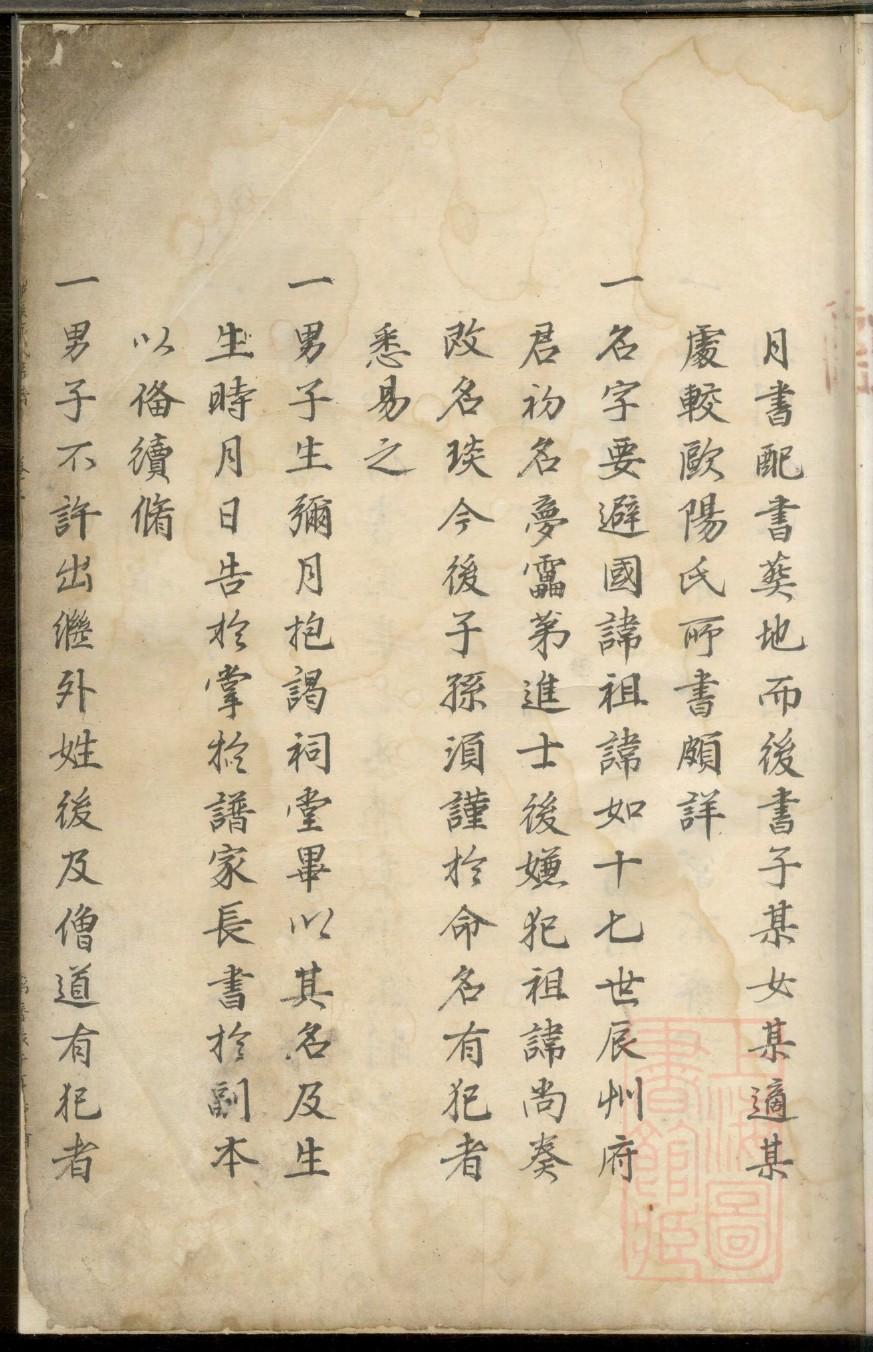 月書配書葬地而後書子某女某適某
處較歐陽氏所書頗詳
一名字要避國諱祖諱如十七世辰州府
君初名夢靁第進士後嫌犯祖諱尚奏
改名琰今後子孫須謹於命名有犯者
悉易之
一男子生彌月抱謁祠堂畢以其名及生
生時月日告於掌於譜家長書於副本
以俻續脩
一男子不許出繼外姓後及僧道有犯者
上海圖
書館藏